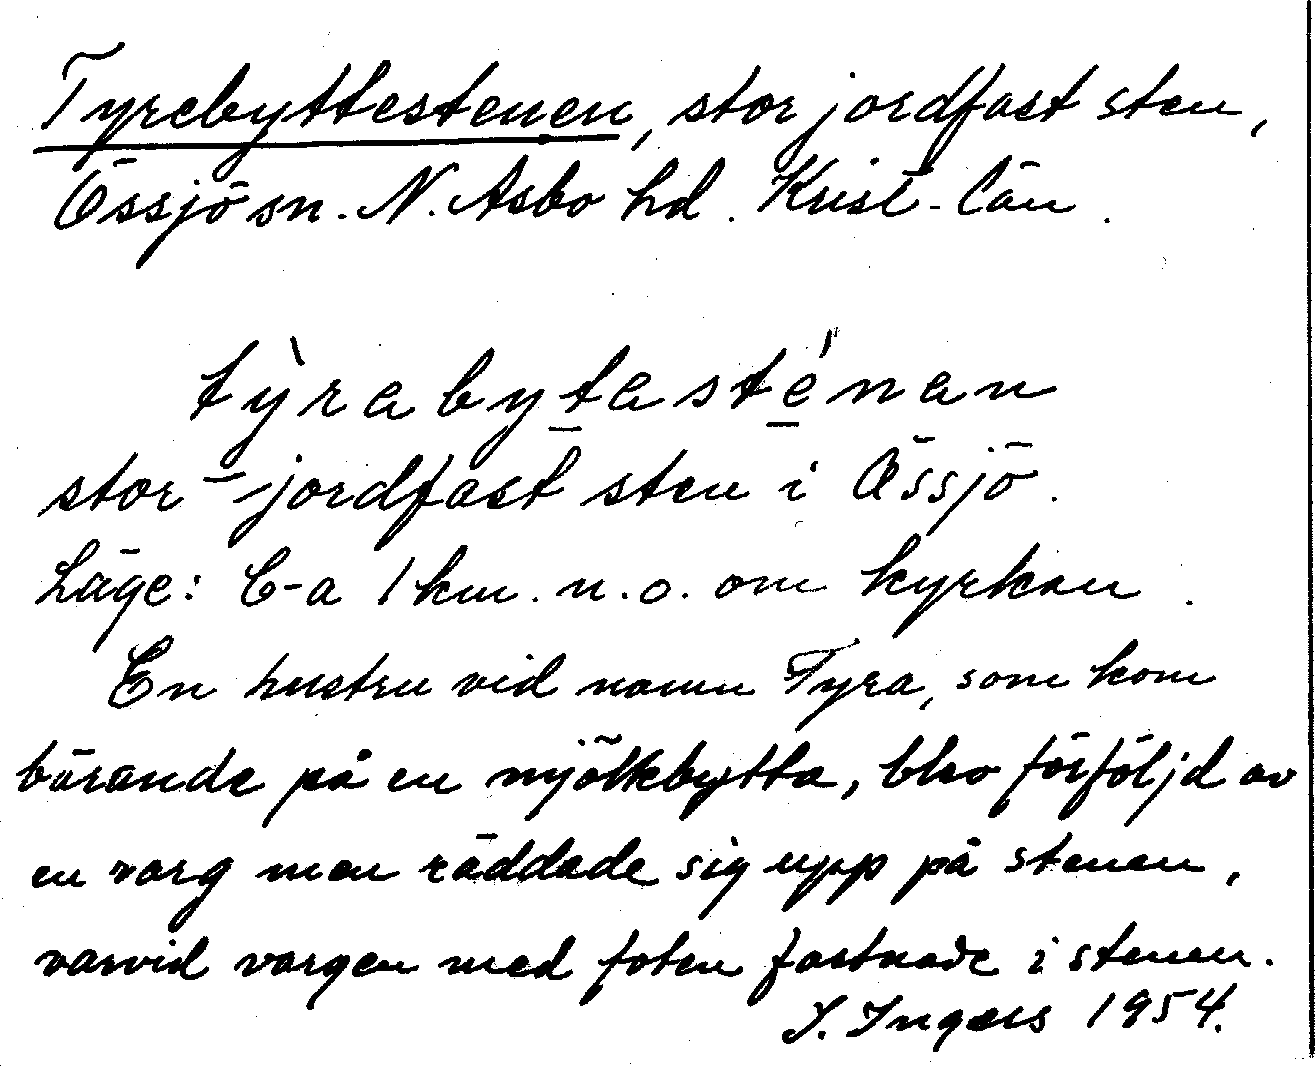 Tyrebyttestenen, stor jordfast sten,
Össjö sn. N. Åsbo hd. Krist. län.
tỳrabytasténan
stor jordfast sten i Össjö.
Läge: C-a 1 km. n.o. om kyrkan.
En hustru vid namn Tyra, som kom
bärande på en mjölkbytta, blev förföljd av
en varg men räddade sig upp på stenen,
varvid vargen med foten fastnade i stenen.
I. Ingers 1954.